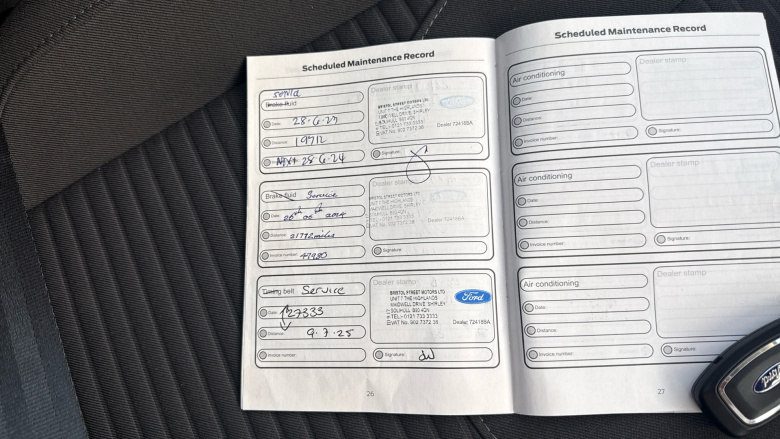 Scheduled Maintenance Record
Service
Brake fluid
Date: 28-6-23
Distance: 19712
Nxt 28-6-24
Dealer stamp
BRISTOL STREET MOTORS LTD
UNIT 7 THE HIGHLANDS
SHIRLEY
SOLIHULL B90 4DN
TEL: 0121 733 3333
VAT No. 902 7372 38
Dealer 72418BA
Signature:
Brake fluid Service
Date:
Distance: 21792 miles
Invoice number:
Dealer stamp
BRISTOL STREET MOTORS LTD
UNIT 7 THE HIGHLANDS
Signature:
Timing belt Service
Date: 27333
Distance: 9.7.25
Invoice number:
Dealer stamp
BRISTOL STREET MOTORS LTD
UNIT 7 THE HIGHLANDS
SHIRLEY
SOLIHULL B90 4DN
TEL: 0121 733 3333
VAT No. 902 7372 38
Ford
Signature:
26
Scheduled Maintenance Record
Air conditioning
Date:
Distance:
Invoice number:
Dealer stamp
Signature:
Air conditioning
Date:
Distance:
Invoice number:
Dealer stamp
Signature:
Air conditioning
Date:
Distance:
Invoice number:
Dealer stamp
Signature:
27
Ford